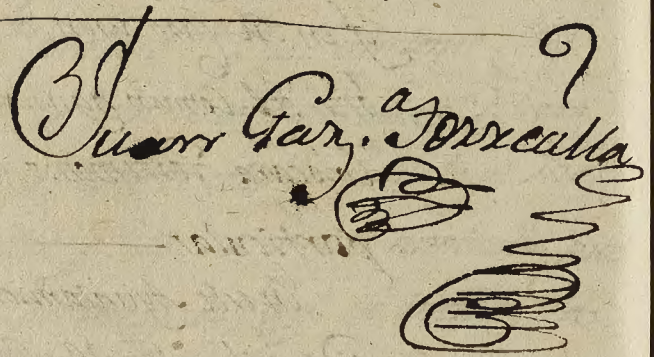 Juan Garz.ª Torrealla